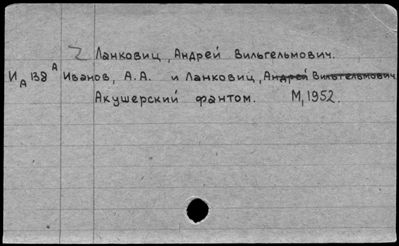 2 Ланковиц, Андрей Вильгельмович.
ИА138А Иванов, А.А. и Ланковиц, Андрей Вильгельмович
Акушерский фантом. М, 1952.